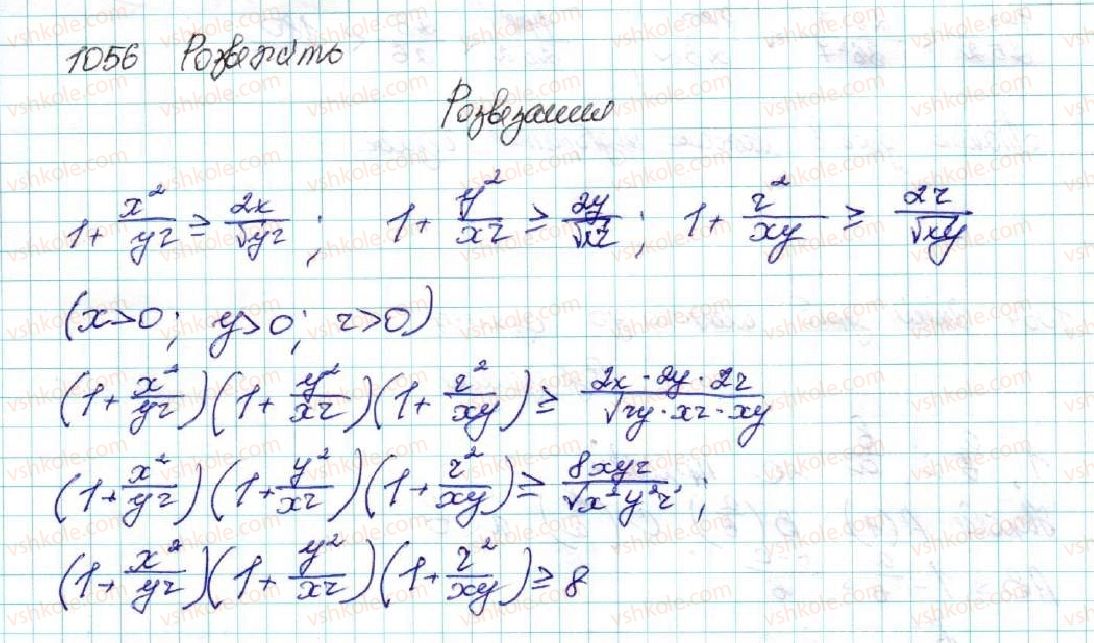 1056 Розвезать
Розвезання
1 + x²/yz ≥ 2x/√yz ; 1 + y²/xz ≥ 2y/√xz ; 1 + z²/xy ≥ 2z/√xy
(x>0; y>0; z>0)
(1 + x²/yz)(1 + y²/xz)(1 + z²/xy) ≥ 2x·2y·2z/√zy·xz·xy
(1 + x²/yz)(1 + y²/xz)(1 + z²/xy) ≥ 8xyz/√x²y²z² ;
(1 + x²/yz)(1 + y²/xz)(1 + z²/xy) ≥ 8